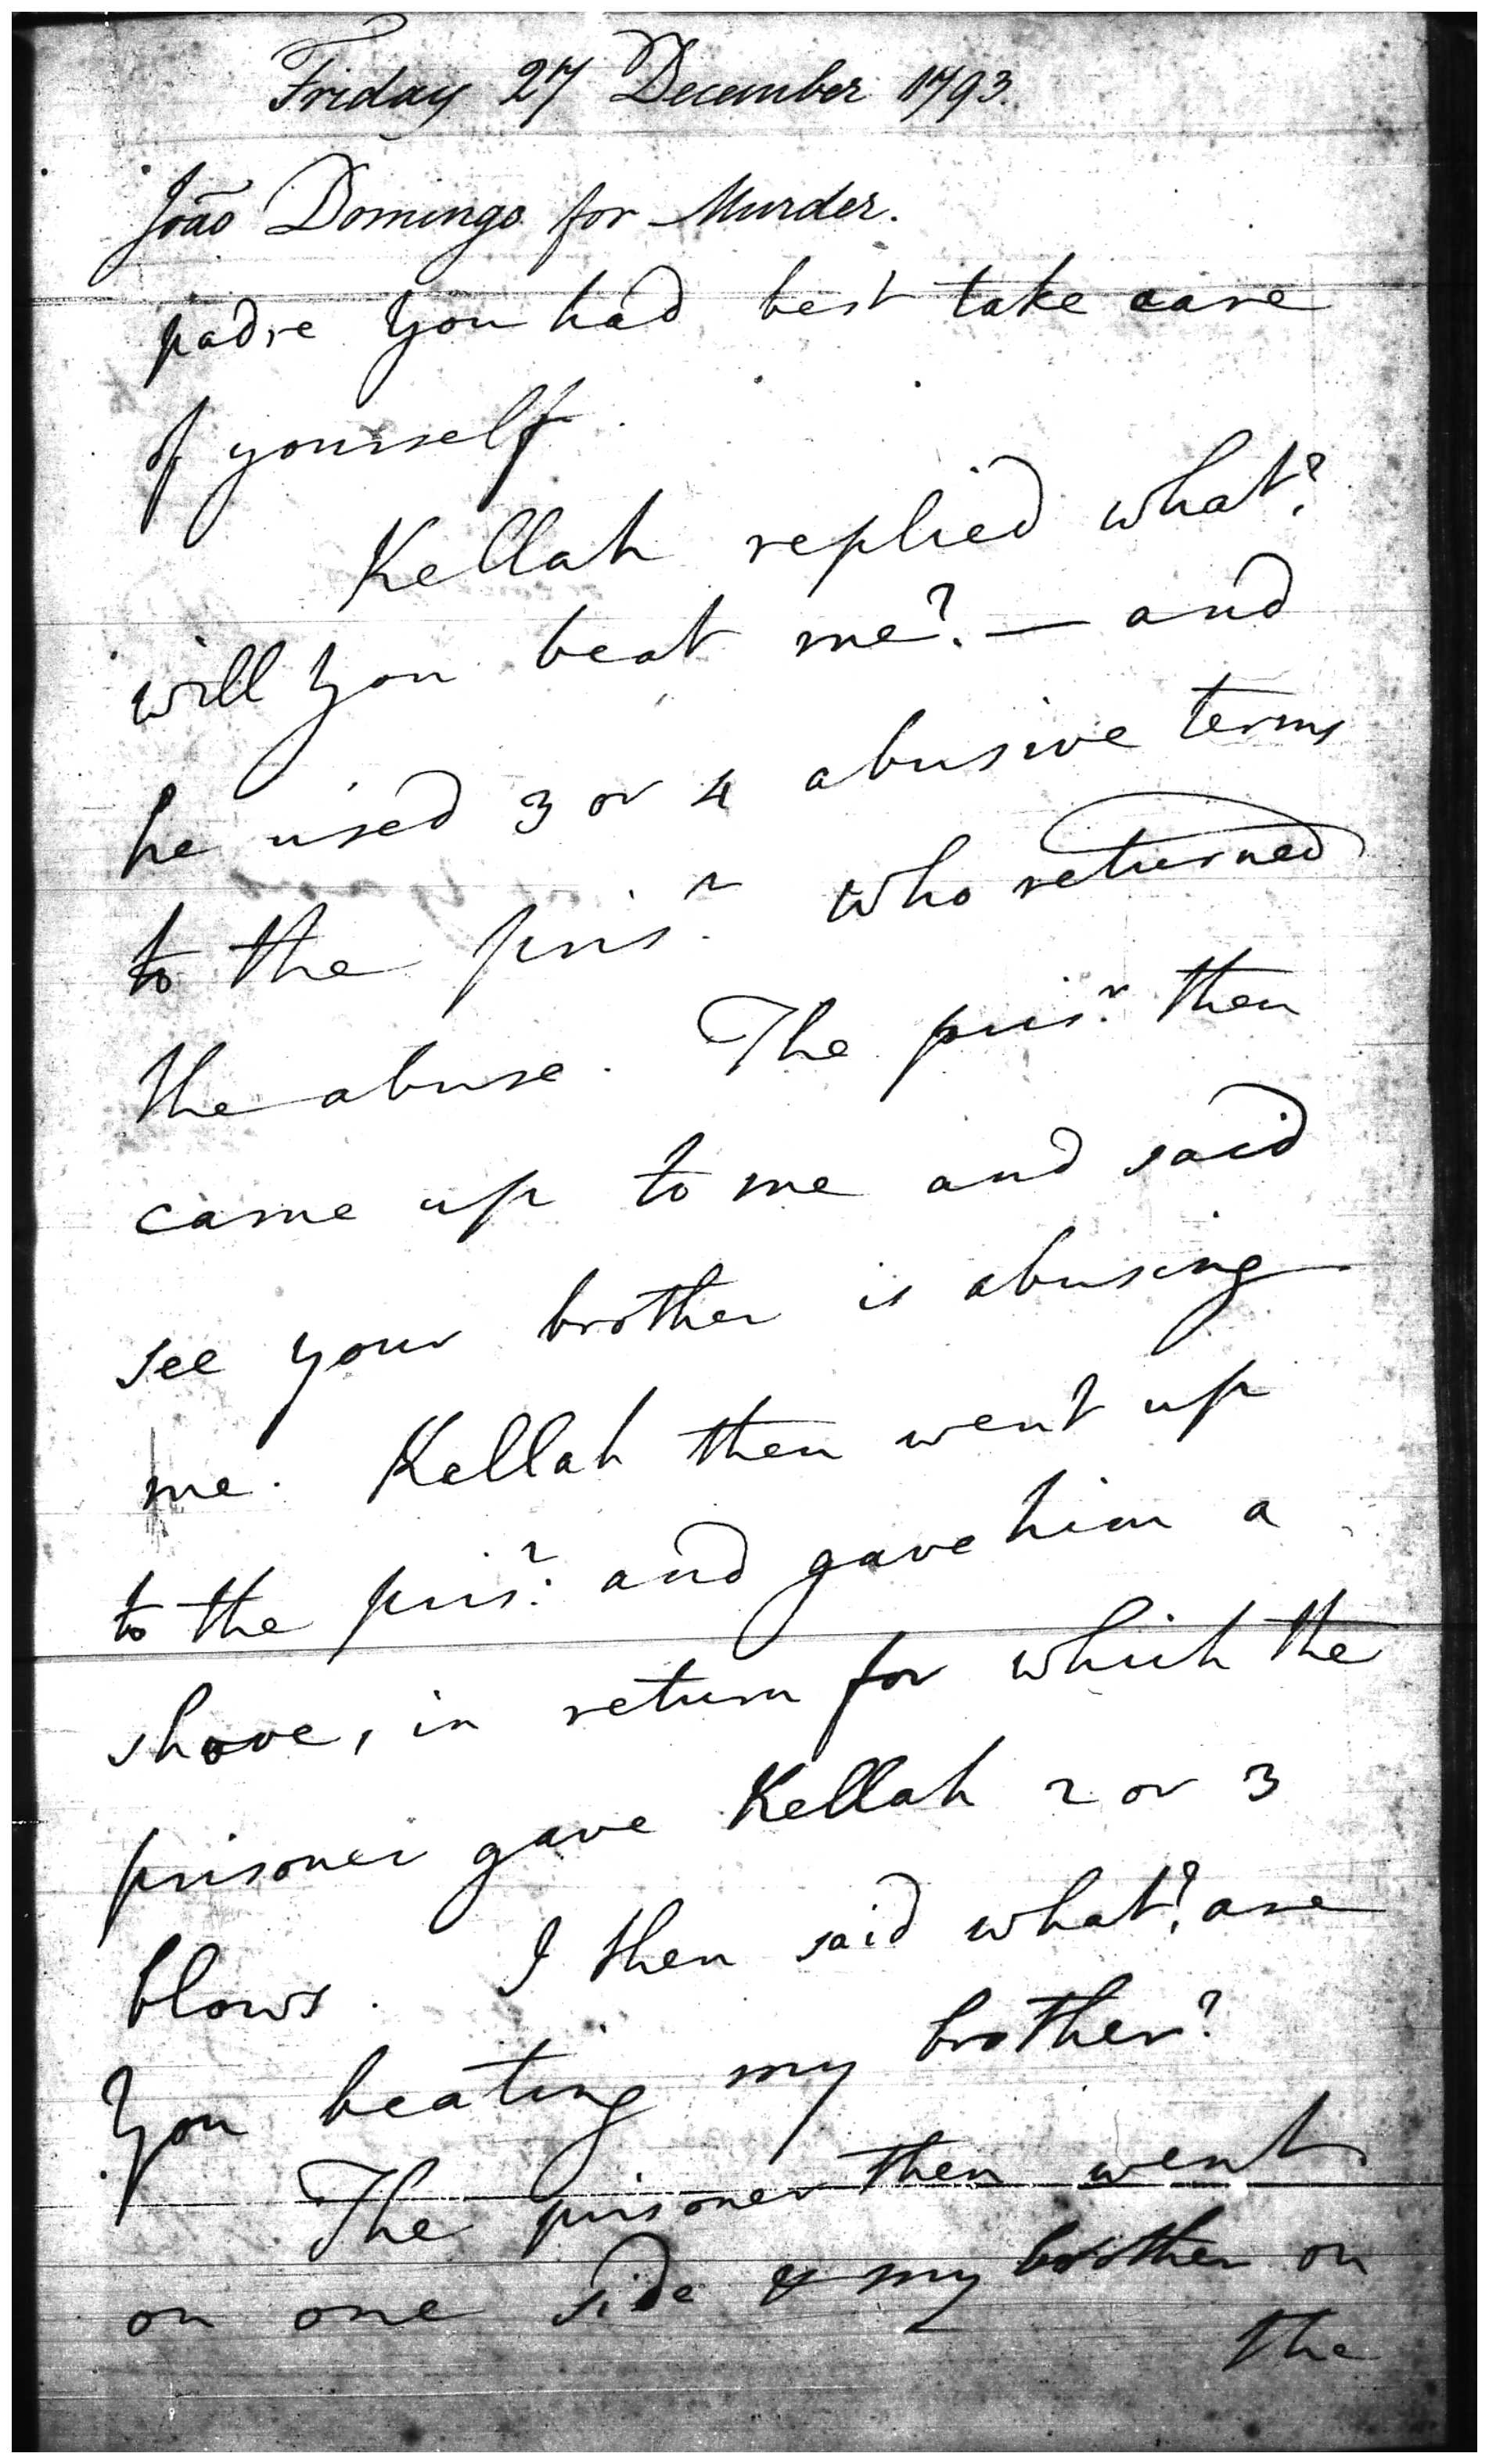 Friday 27 December 1793.
João Domingo for Murder.
padre you had best take care
of yourself.
Kellah replied what?
will you beat me? — and
he used 3 or 4 abusive terms
to the prisʳ. who returned
the abuse. The prisʳ. then
came up to me and said
see your brother is abusing
me. Kellah then went up
to the prisʳ. and gave him a
shove, in return for which the
prisoner gave Kellah 2 or 3
blows. I then said what? are
you beating my brother?
The prisoner then went
on one side & my brother on
the